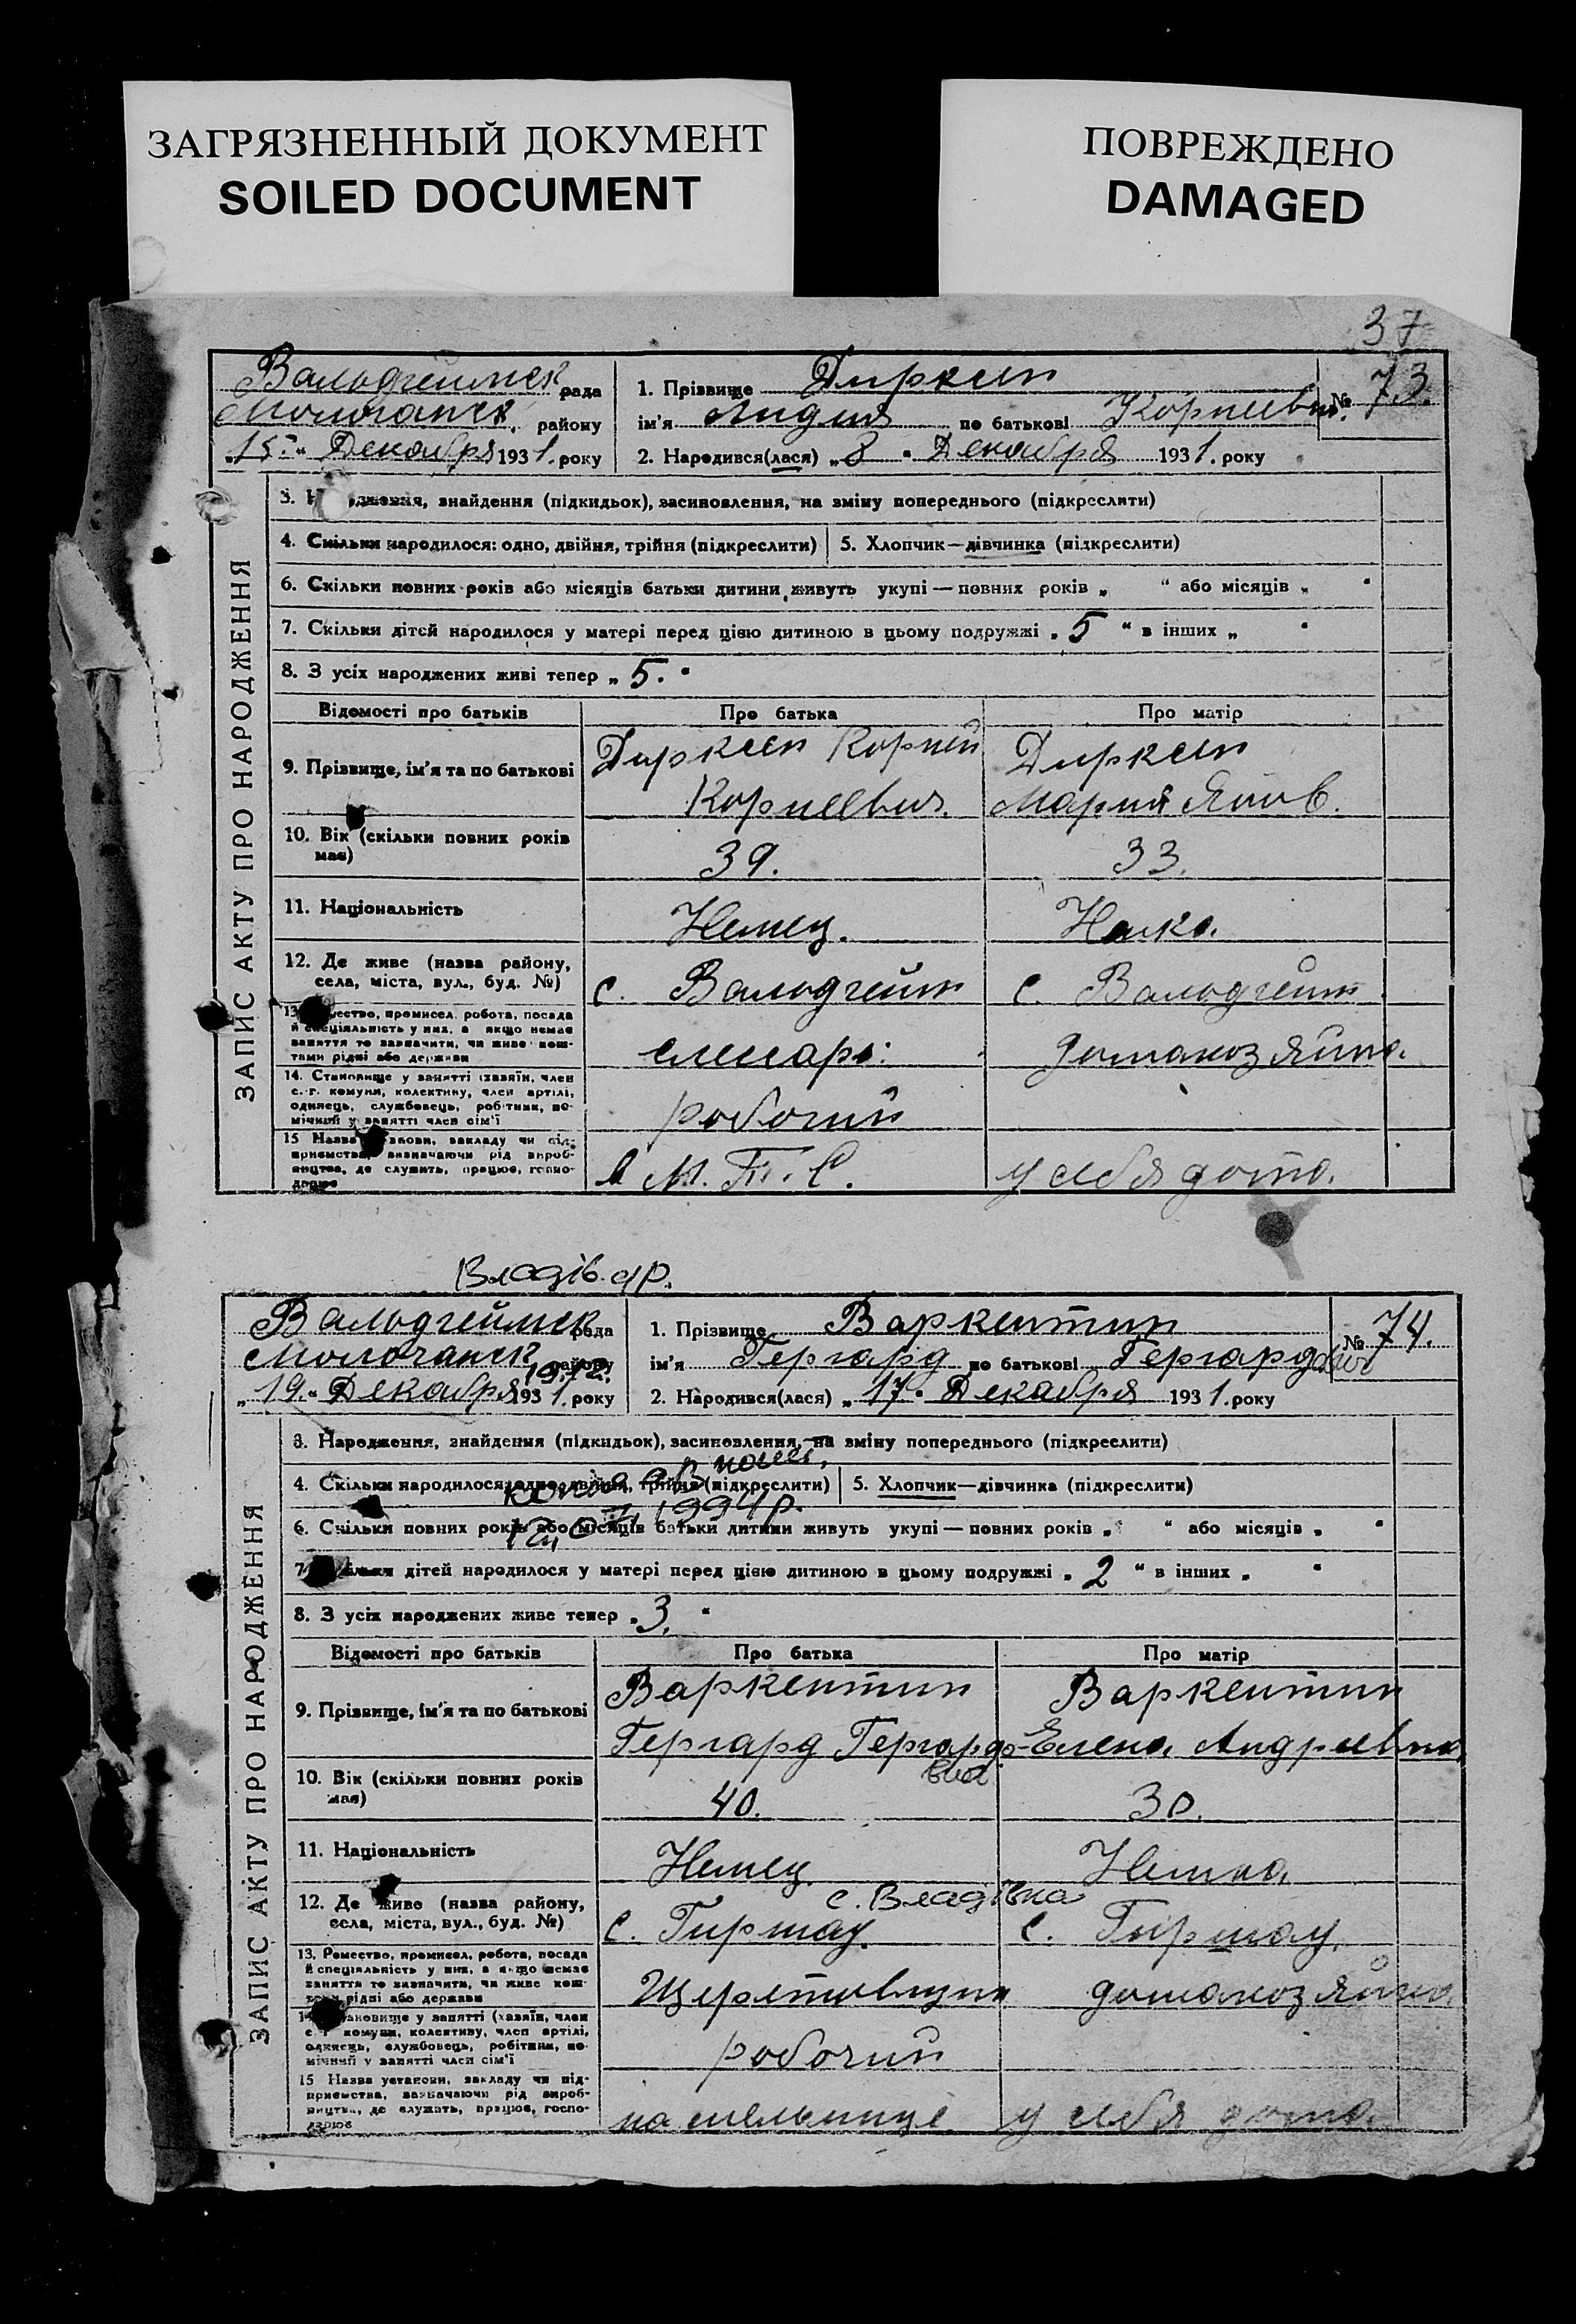 ЗАГРЯЗНЕННЫЙ ДОКУМЕНТ
SOILED DOCUMENT
ПОВРЕЖДЕНО
DAMAGED
37
Вальдгеймск рада
Молочанск. району
„15“ Декабря 1931. року
1. Прізвище Дирксен
ім'я Лидия по батькові Корнеевн.
2. Народився(лася) „8“ Декабря 1931. року
№ 73.
ЗАПИС АКТУ ПРО НАРОДЖЕННЯ
3. Народження, знайдення (підкидьок), засиновлення, на зміну попереднього (підкреслити)
4. Скільки народилося: одно, двійня, трійня (підкреслити) 5. Хлопчик—дівчинка (підкреслити)
6. Скільки повних років або місяців батьки дитини живуть укупі — повних років „ “ або місяців „ “
7. Скільки дітей народилося у матері перед цією дитиною в цьому подружжі „5“ в інших „ “
8. З усіх народжених живі тепер „5.“
Відомості про батьків Про батька Про матір
9. Прізвище, ім'я та по батькові
Дирксен Корней
Корнеевич.
Дирксен
Мария Яков.
10. Вік (скільки повних років
має)
39.
33.
11. Національність
Немец.
Немка.
12. Де живе (назва району,
села, міста, вул., буд. №)
с. Вальдгейм
с. Вальдгейм
13. Ремество, промисел, робота, посада
й спеціяльність у них, а якщо немає
заняття то зазначити, чи живе кош-
тами рідні або держави
слесарь
домахозяйка.
14. Становище у занятті (хазяїн, член
с.-г. комуни, колективу, член артілі,
одинець, службовець, робітник, по-
мічний у занятті член сім'ї
рабочий
15 Назва установи, закладу чи під-
приємства, визначаючи рід вироб-
ництва, де служить, працює, госпо-
дарює
в М. Т. С.
у себя дома.
Владів. с/р.
Вальдгеймск рада
Молочанск району
19.12.
„19“ Декабря 1931. року
1. Прізвище Варкентин
ім'я Гергард по батькові Гергардович
2. Народився(лася) „17“ Декабря 1931. року
№ 74.
ЗАПИС АКТУ ПРО НАРОДЖЕННЯ
3. Народження, знайдення (підкидьок), засиновлення, на зміну попереднього (підкреслити)
4. Скільки народилося: одно, двійня, трійня (підкреслити) 5. Хлопчик—дівчинка (підкреслити)
1994р.
6. Скільки повних років або місяців батьки дитини живуть укупі — повних років „ “ або місяців „ “
7. Скільки дітей народилося у матері перед цією дитиною в цьому подружжі „2“ в інших „ “
8. З усіх народжених живе тепер „3.“
Відомості про батьків Про батька Про матір
9. Прізвище, ім'я та по батькові
Варкентин
Гергард Гергардо-
вич
Варкентин
Елена Андреевна
10. Вік (скільки повних років
має)
40.
30.
11. Національність
Немец
Немка.
12. Де живе (назва району,
села, міста, вул., буд. №)
с. Владівка
с. Гиршау.
с. Гиршау.
13. Ремество, промисел, робота, посада
й спеціяльність у них, а якщо немає
заняття то зазначити, чи живе кош-
тами рідні або держави
домахозяйка.
14. Становище у занятті (хазяїн, член
с.-г. комуни, колективу, член артілі,
одинець, службовець, робітник, по-
мічний у занятті член сім'ї
рабочий
15 Назва установи, закладу чи під-
приємства, зазначаючи рід вироб-
ництва, де служить, працює, госпо-
дарює
на мельнице
у себя дома.